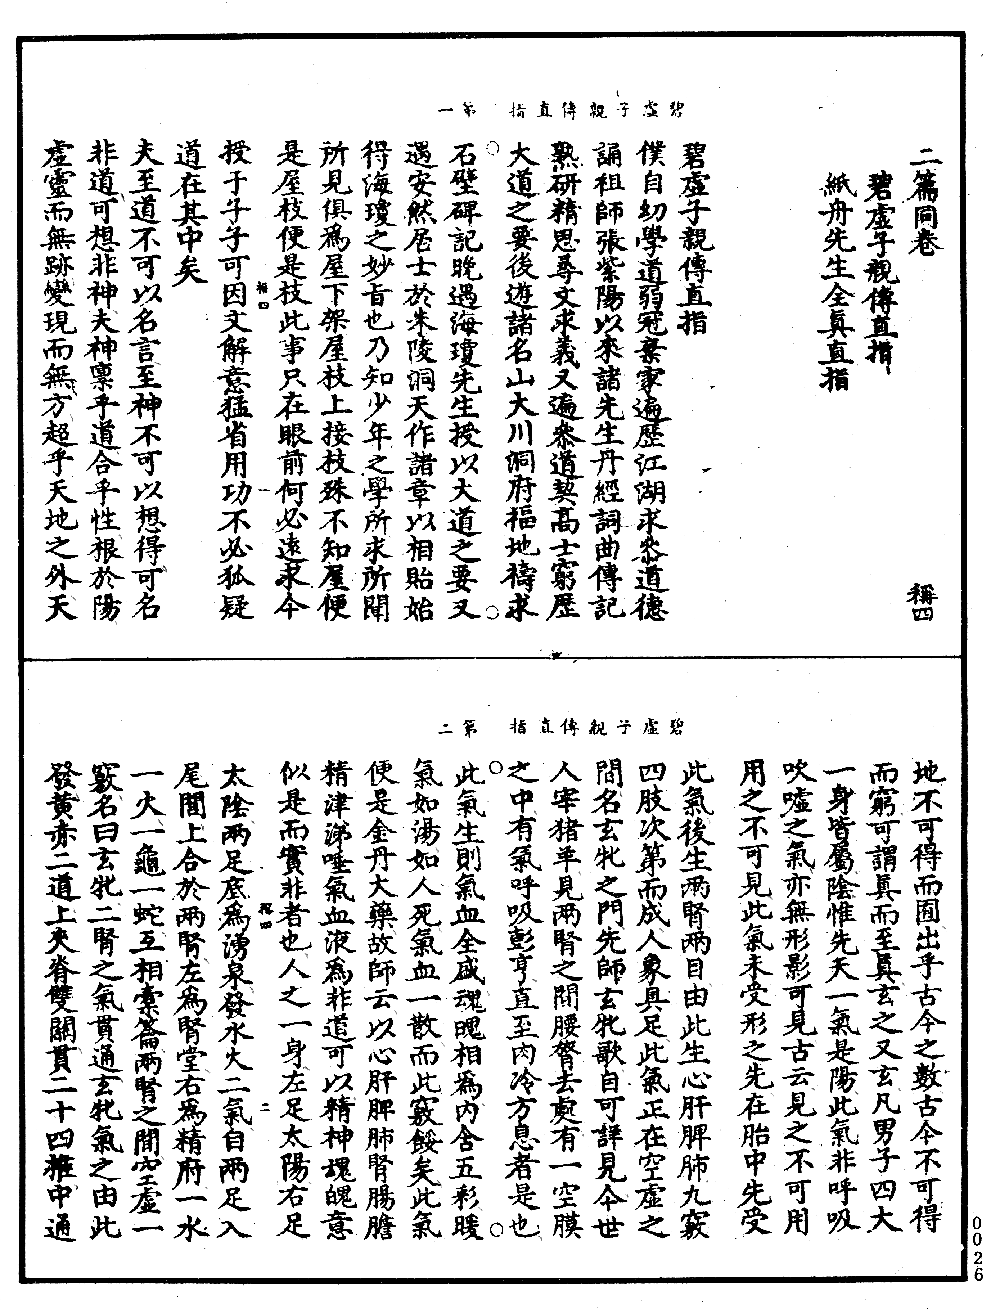 二篇同卷
稱四
碧虛子親傳直指
紙舟先生全真直指
碧虛子親傳直指　第一
碧虛子親傳直指
僕自幼學道弱冠棄家遍歷江湖求叅道德
誦祖師張紫陽以來諸先生丹經詞曲傳記
熟研精思尋文求義又遍叅道契高士窮歷
大道之要後遊諸名山大川洞府福地禱求
石壁碑記晚遇海瓊先生授以大道之要又
遇安然居士於朱陵洞天作諸章以相貽始
得海瓊之妙旨也乃知少年之學所求所聞
所見俱爲屋下架屋枝上接枝殊不知屋便
是屋枝便是枝此事只在眼前何必遠求今
稱四
一
授子子子可因文解意猛省用功不必狐疑
道在其中矣
夫至道不可以名言至神不可以想得可名
非道可想非神夫神禀乎道合乎性根於陽
虛靈而無跡變現而無方超乎天地之外天
碧虛子親傳直指　第二
地不可得而囿出乎古今之數古今不可得
而窮可謂眞而至眞玄之又玄凡男子四大
一身皆屬陰惟先天一氣是陽此氣非呼吸
吹噓之氣亦無形影可見古云見之不可用
用之不可見此氣未受形之先在胎中先受
此氣後生兩腎兩目由此生心肝脾肺九竅
四肢次第而成人象具足此氣正在空虛之
間名玄牝之門先師玄牝歌自可詳見今世
人宰猪羊見兩腎之間腰脊去處有一空膜
之中有氣呼吸彭亨直至肉冷方息者是也
此氣生則氣血全盛魂魄相爲內含五彩暖
氣如湯如人死氣血一散而此竅餒矣此氣
便是金丹大藥故師云以心肝脾肺腎腸膽
精津涕唾氣血液爲非道可以精神魂魄意
似是而實非者也人之一身左足太陽右足
稱四
二
太陰兩足底爲湧泉發水火二氣自兩足入
尾閭上合於兩腎左爲腎堂右爲精府一水
一火一龜一蛇互相橐籥兩腎之間空虛一
竅名曰玄牝二腎之氣貫通玄牝氣之由此
發黃赤二道上夾脊雙關貫二十四椎中通
0026